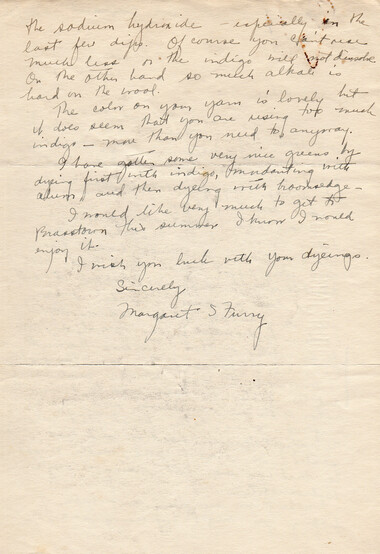 the sodium hydroxide - especially in the
last few dips. Of course you can't use
much less or the indigo will not dissolve
On the other hand so much alkali is
hard on the wool.
The color on your yarn is lovely but
it does seem that you are using too much
indigo - more than you need to anyway.
I have gotten some very nice greens by
dyeing first with indigo, mordanting with
alum, and then dyeing with
I would like very much to get to
Brasstown this summer. I know I would
enjoy it.
I wish you luck with your dyeings.
Sincerely
Margaret S Furry